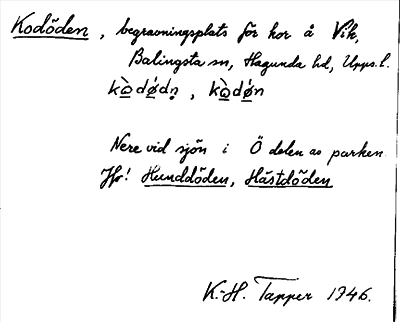 Kodöden, begravningsplats för kor å Vik,
Balingsta sn, Hagunda hd, Upps. l.
kò̲dǿ̲dṇ, kò̲dǿ̲n
Nere vid sjön i Ö delen av parken.
Jfr! Hunddöden, Hästdöden
K.-H. Tapper 1946.